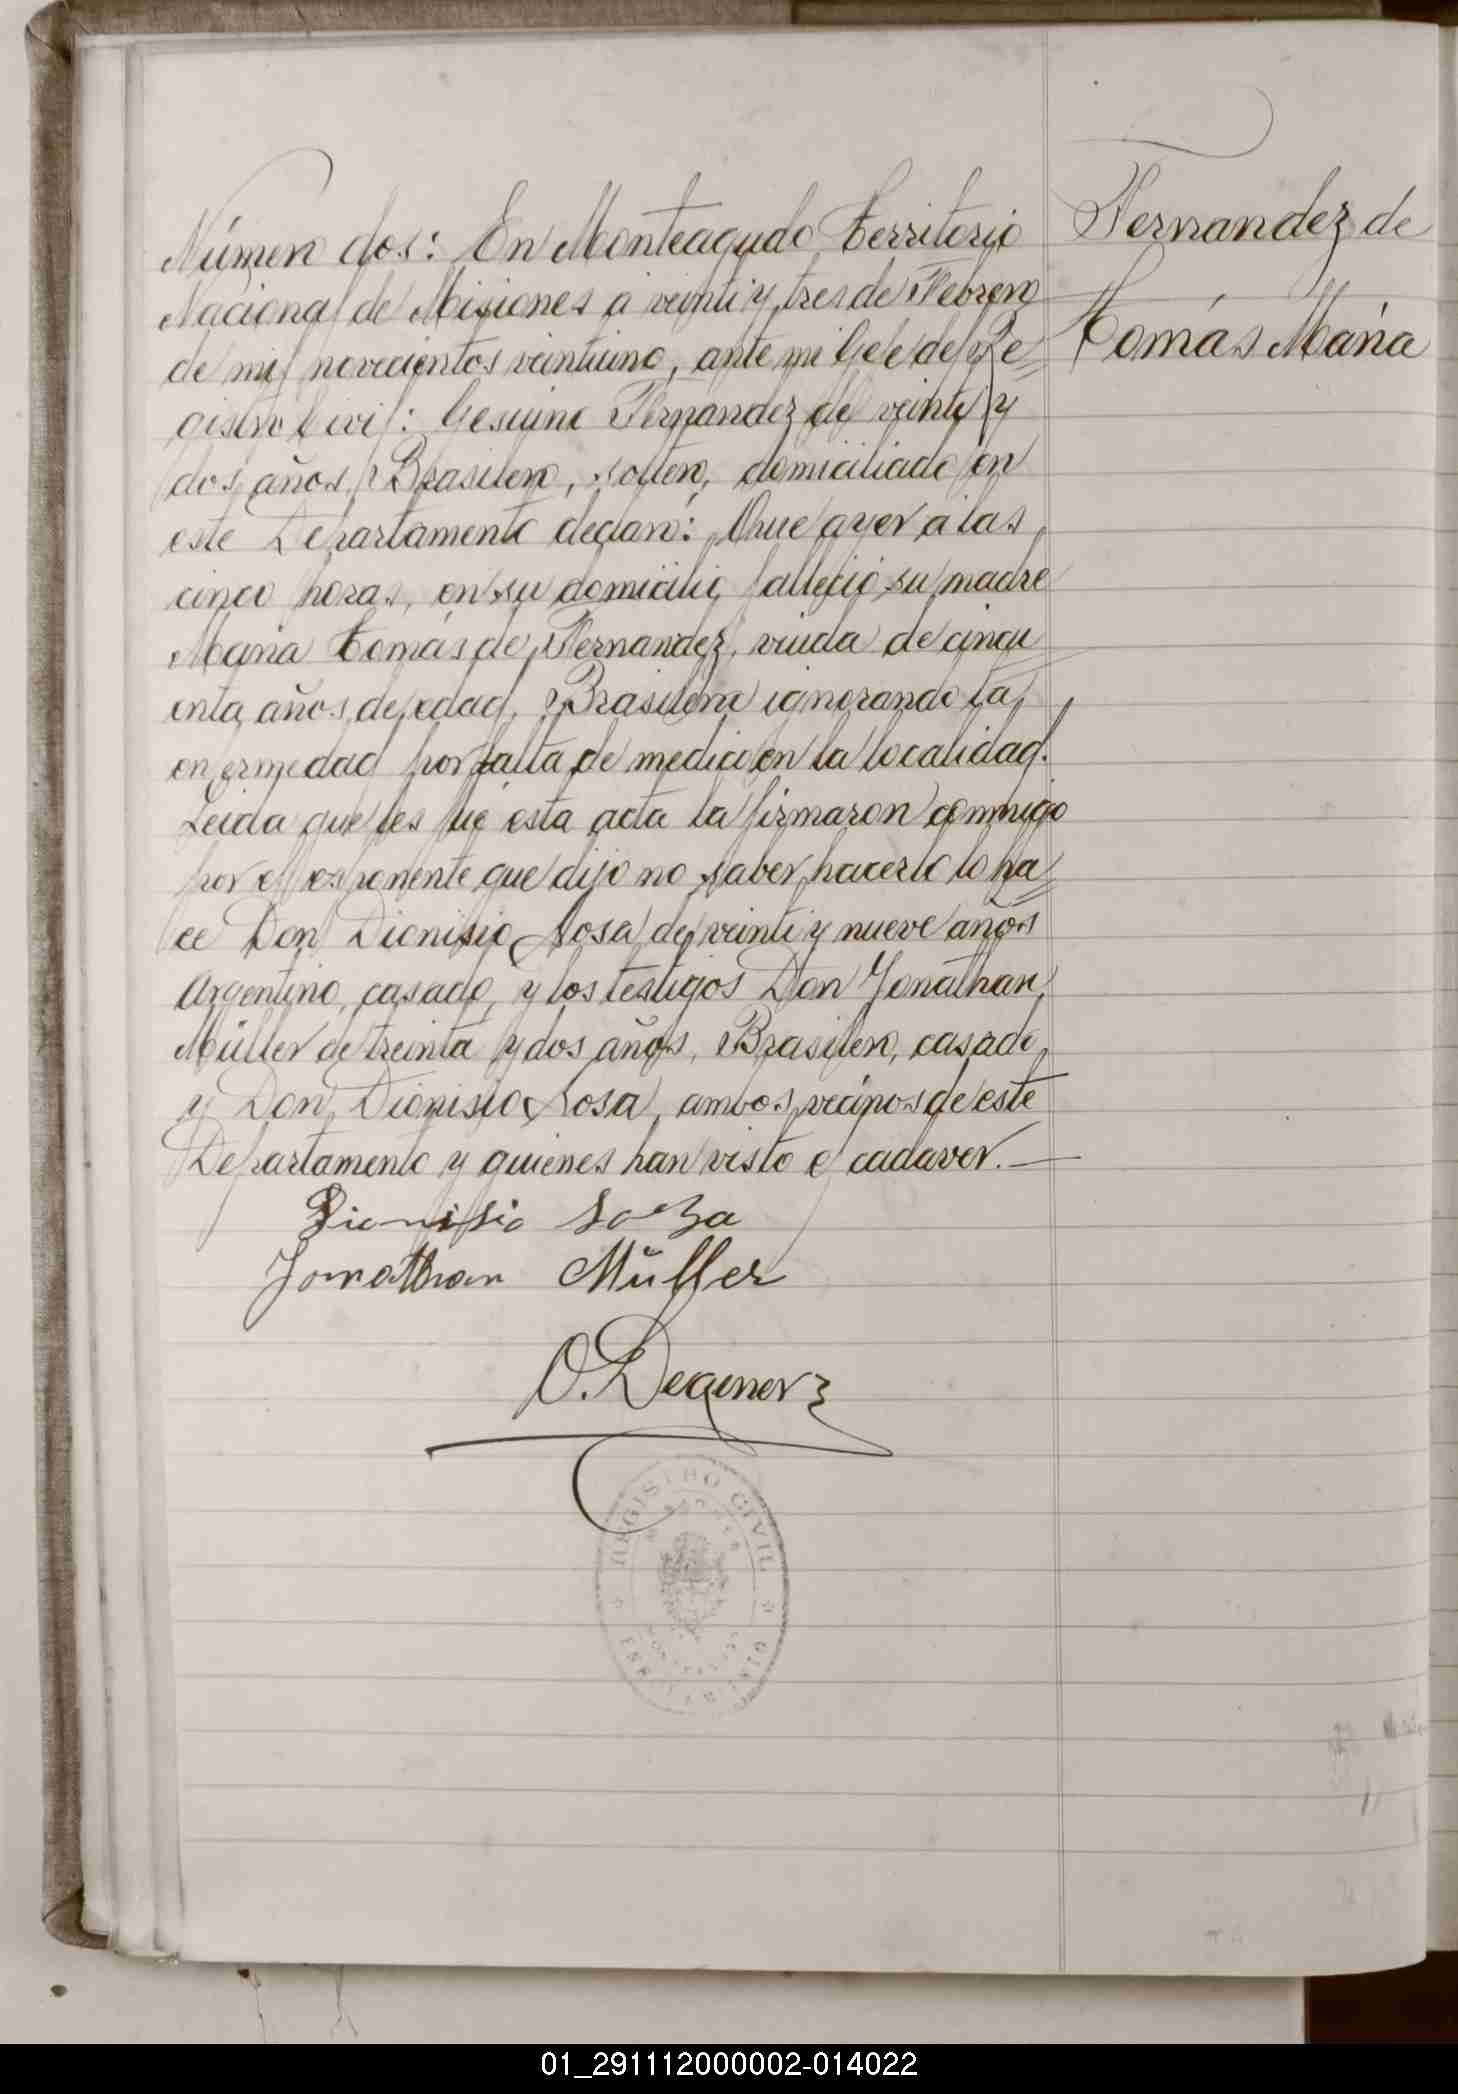 Número dos: En Monteagudo Territorio
Nacional de Misiones a veinti y tres de Febrero
de mil novecientos veintiuno, ante mi Gefe del Re=
gistro Civil: Gesuino Fernandez de veinti y
dos años, Brasilero, soltero, domiciliado en
este Departamento declaró: Que ayer a las
cinco horas, en su domicilio falleció su madre
Maria Tomás de Fernandez, viuda de cincu
enta años de edad, Brasilera ignorando la
enfermedad por falta de medico en la localidad.
Leida que les fué esta acta la firmaron conmigo
por el esponente que dijo no saber hacerlo lo ha=
ce Don Dionisio Sosa de veinti y nueve años
Argentino, casado, y los testigos Don Jonathan
Müller de treinta y dos años, Brasilero, casado,
y Don Dionisio Sosa, ambos vecinos de este
Departamento y quienes han visto el cadaver.—
Dionisio Soza
Jonathan Müller
O. Degenerz
REGISTRO CIVIL
Fernandez de
Tomás Maria
01_291112000002-014022